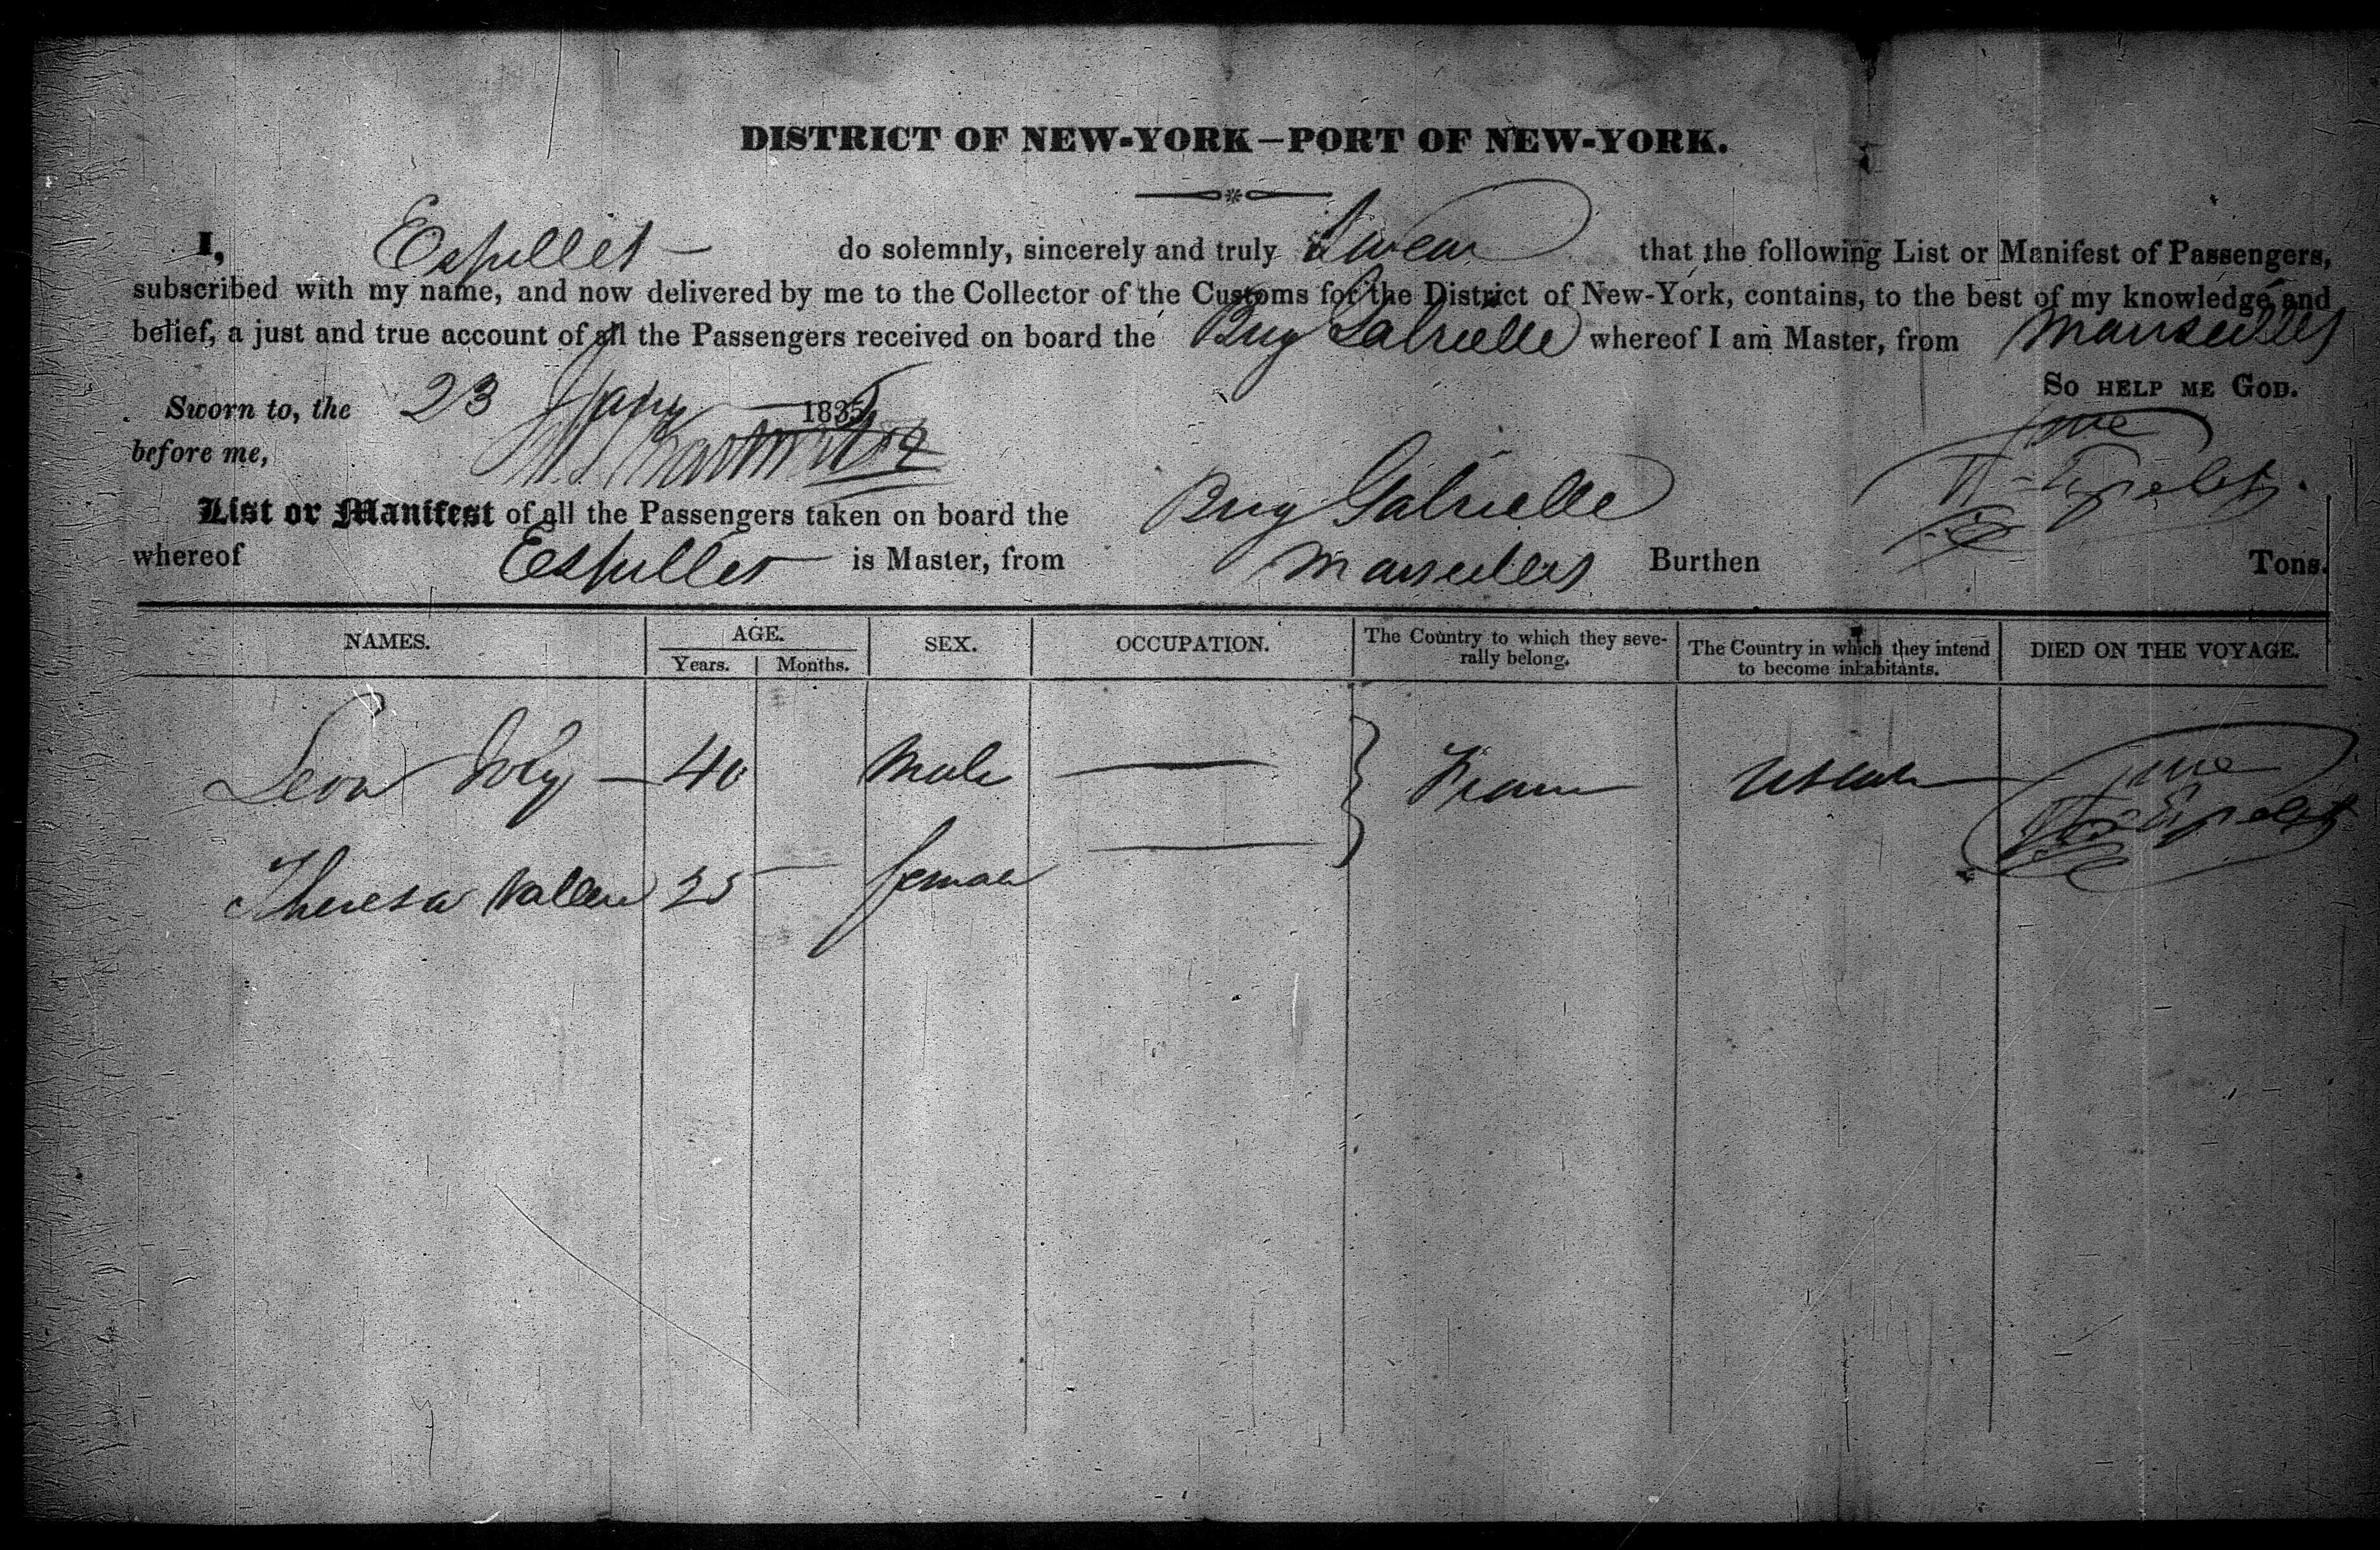 DISTRICT OF NEW-YORK—PORT OF NEW-YORK.
I, Espullet — do solemnly, sincerely and truly Swear that the following List or Manifest of Passengers,
subscribed with my name, and now delivered by me to the Collector of the Customs for the District of New-York, contains, to the best of my knowledge and
belief, a just and true account of all the Passengers received on board the Brig Gabrielle whereof I am Master, from Marseilles
SO HELP ME GOD.
Sworn to, the 23 Jany 1835
before me,
List or Manifest of all the Passengers taken on board the Brig Gabrielle
whereof Espullet is Master, from Marseilles Burthen Tons.
NAMES. AGE. SEX. OCCUPATION. The Country to which they severally belong. The Country in which they intend to become inhabitants. DIED ON THE VOYAGE.
Years. Months.
Leon 40 Male — France U States
Theresa 25 — female —